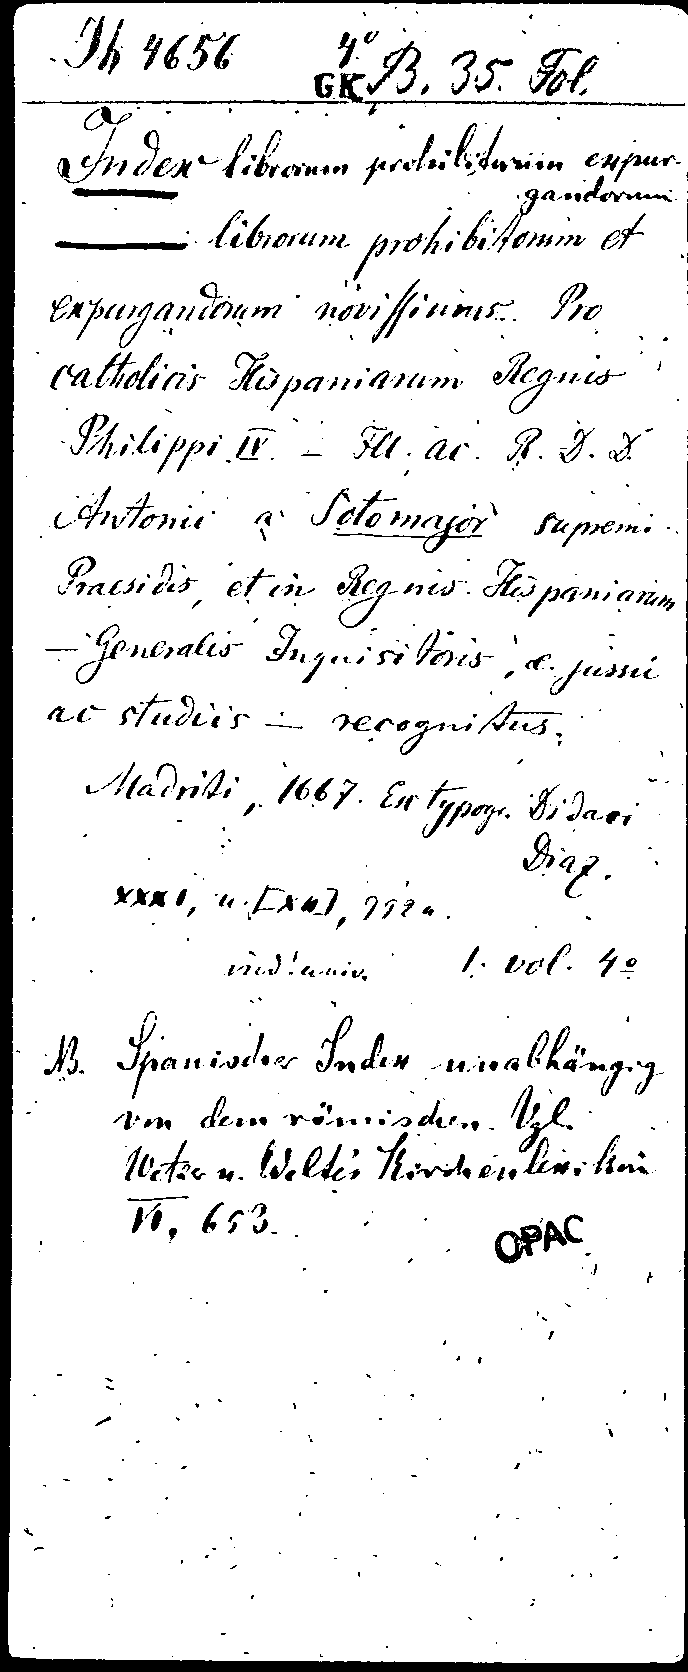 Th 4656 4°
GK B. 35. Fol.
Index librorum prohibitorum expur-
gandorum
——— librorum prohibitorum et
expurgandorum novissimus. Pro
catholicis Hispaniarum Regnis
Philippi IV. — Ill. ac. R. D. D.
Antonii a Sotomajor supremi
Praesidis, et in Regnis Hispaniarum
— Generalis Inquisitoris, &. jussu
ac studiis — recognitus.
Madriti, 1667. Ex typogr. Didaci
Diaz.
XXXI, u. [XII], 992
1. vol. 4°
NB. Spanischer Index unabhängig
von dem römischen. Vgl.
Wetzer u. Welte's Kirchenlexikon
VI, 653.
OPAC